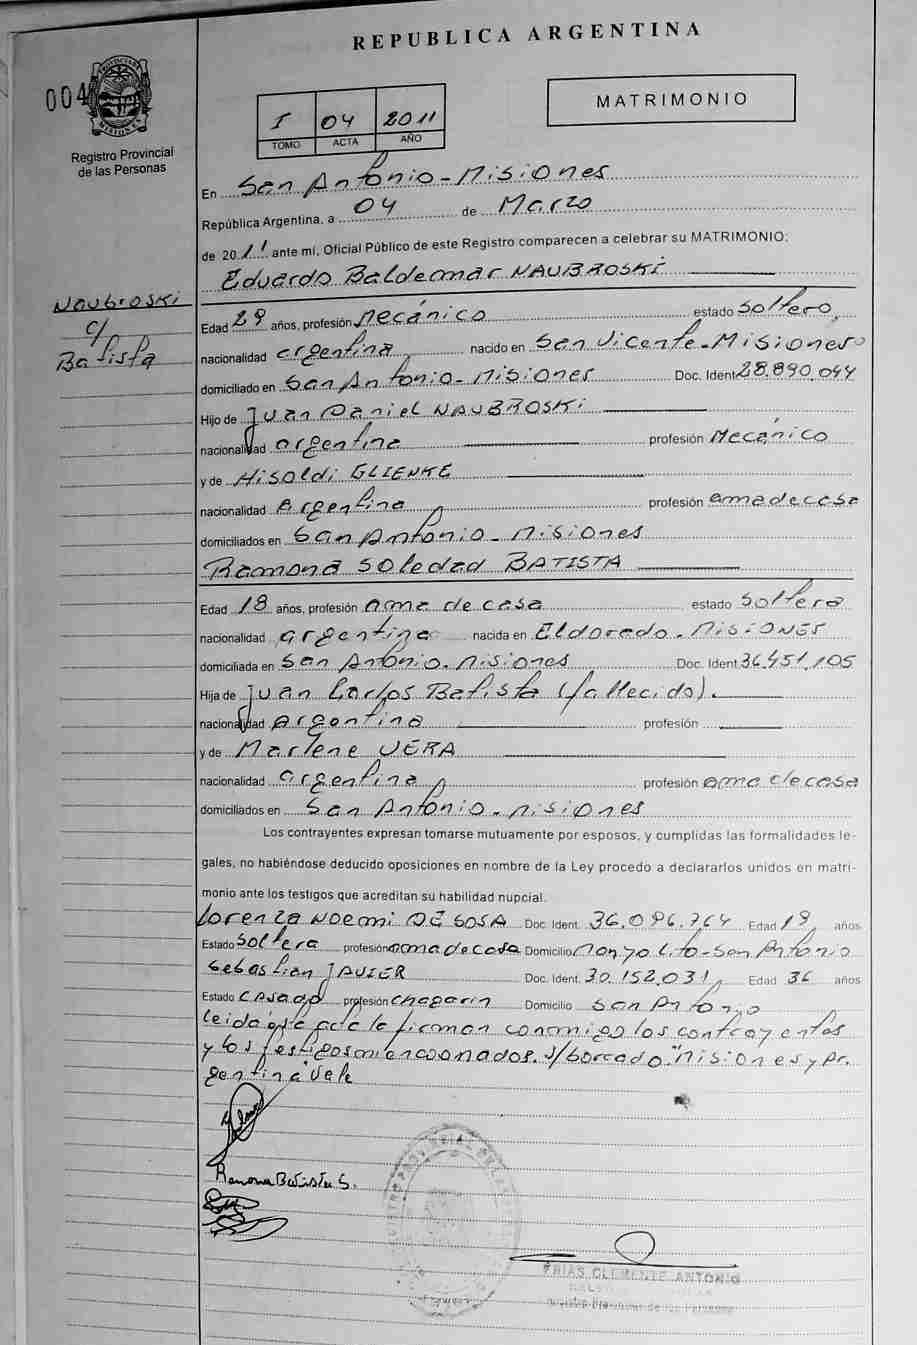 REPUBLICA ARGENTINA
004
PROVINCIA MISIONES
Registro Provincial
de las Personas
I 04 2011
TOMO ACTA AÑO
MATRIMONIO
En San Antonio - Misiones
República Argentina, a 04 de Marzo
de 2011 ante mí, Oficial Público de este Registro comparecen a celebrar su MATRIMONIO:
Eduardo Baldemar NAUBROSKi
Naubroski
c/
Batista
Edad 29 años, profesión Mecánico estado soltero,
nacionalidad argentina nacido en San Vicente - Misiones
domiciliado en San Antonio - Misiones Doc. Ident 28.890.044
Hijo de Juan Daniel NAUBROSKi
nacionalidad argentina profesión Mecánico
y de Hisoldi GLIENKE
nacionalidad Argentina profesión ama de casa
domiciliados en San Antonio - Misiones
Ramona Soledad BATISTA
Edad 18 años, profesión ama de casa estado soltera
nacionalidad argentina nacida en Eldorado - MISIONES
domiciliada en San Antonio - misiones Doc. Ident 36.451.105
Hija de Juan Carlos Batista (fallecido).
nacionalidad Argentina profesión
y de Marlene VERA
nacionalidad argentina profesión ama de casa
domiciliados en San Antonio - misiones
Los contrayentes expresan tomarse mutuamente por esposos, y cumplidas las formalidades le-
gales, no habiéndose deducido oposiciones en nombre de la Ley procedo a declararlos unidos en matri-
monio ante los testigos que acreditan su habilidad nupcial.
Lorenza Noemi DE SOSA Doc. Ident. 36.096.764 Edad 19 años
Estado soltera profesión ama de casa Domicilio Manzolito - San Antonio
Sebastian JAVIER Doc. Ident. 30.152.031 Edad 36 años
Estado casado profesión chaparin Domicilio San Antonio
leida que acta la firman conmigo los contrayentes
y los testigos mencionados. s/borrado "misiones y Ar-
gentina" Vale
Ramona Batista S.
FRIAS CLEMENTE ANTONIO
Registro Provincial de las Personas